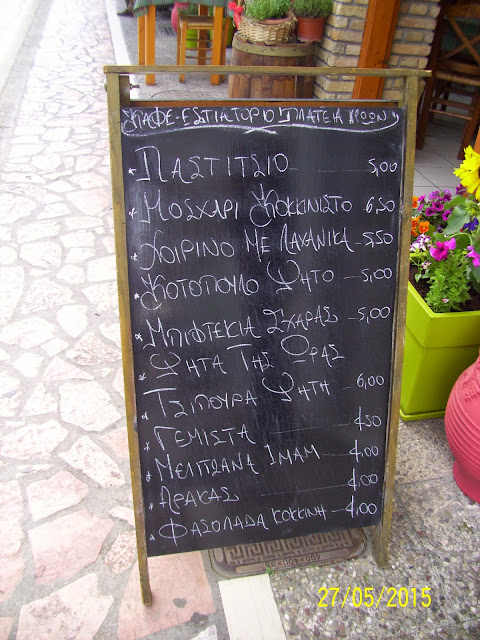 ΚΑΦΕ-ΕSΤΙΑΤΟΡΙΟ ΠΛΑΤΕΙΑ ΗΡΩΩΝ
* ΠΑΣΤΙΤSΙΟ 5,00
* ΜΟSΧΑΡΙ ΚΟΚΚΙΝΙSΤΟ 6,50
* ΧΟΙΡΙΝΟ ΜΕ ΛΑΧΑΝΙΚΑ-5,50
* ΚΟΤΟΠΟΥΛΟ ΨΗΤΟ-5,00
* ΜΠΙΦΤΕΚΙΑ ΣΧΑΡΑΣ-5,00
* ΨΗΤΑ ΤΗΣ ΩΡΑΣ
* ΤΣΙΠΟΥΡΑ ΨΗΤΗ-6,00
* ΓΕΜΙΣΤΑ 4,50
* ΜΕΛΙΤΖΑΝΑ ΙΜΑΜ 4,00
* ΑΡΑΚΑΣ 4,00
* ΦΑΣΟΛΑΔΑ ΚΟΚΚΙΝΗ-4,00
27/05/2015